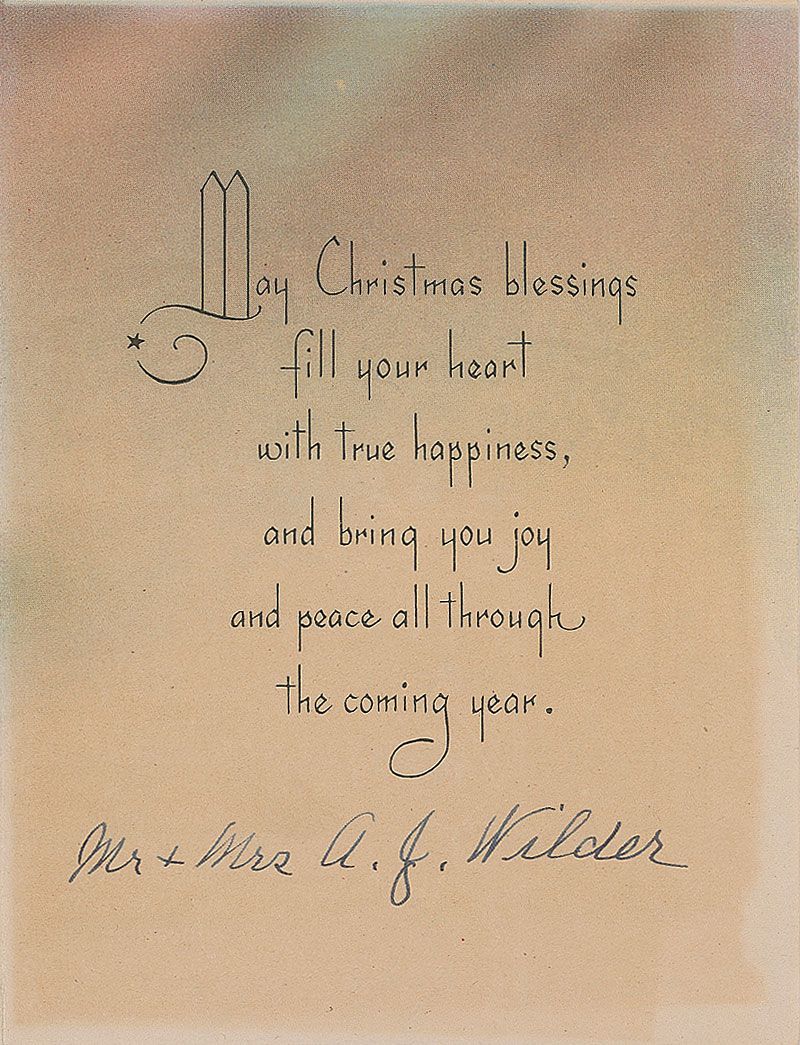 May Christmas blessings
fill your heart
with true happiness,
and bring you joy
and peace all through
the coming year.
Mr + Mrs A. J. Wilder